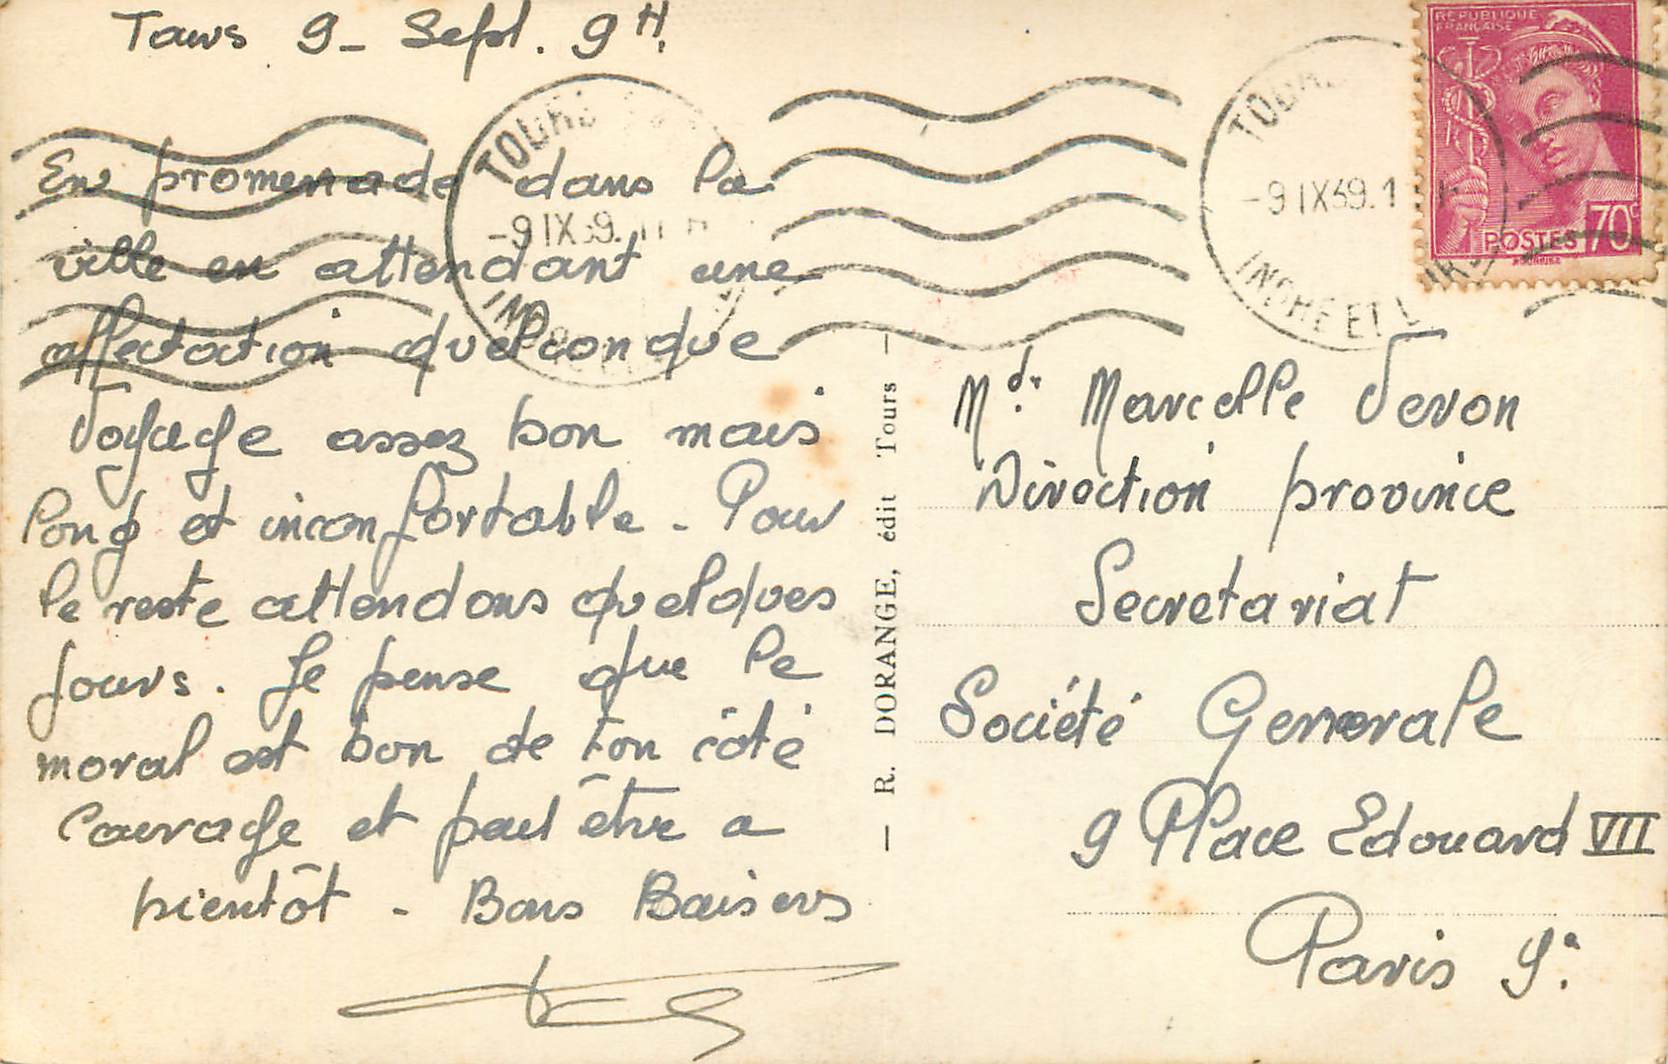 Tours 9 - Sept. 9 H.
En promenade dans la
ville en attendant une
affectation quelconque
Voyage assez bon mais
long et inconfortable - Pour
le reste attendons quelques
jours. Je pense que le
moral est bon de ton côté
Courage et peut être a
bientôt - Bons Baisers
— R. DORANGE, édit Tours —
REPUBLIQUE
FRANÇAISE
POSTES 70c
TOURS
-9 IX 39.
TOURS
-9 IX 39.1
INDRE ET LOIRE
Md. Marcelle Vevon
Direction province
Secretariat
Société Generale
9 Place Edouard VII
Paris 9e.